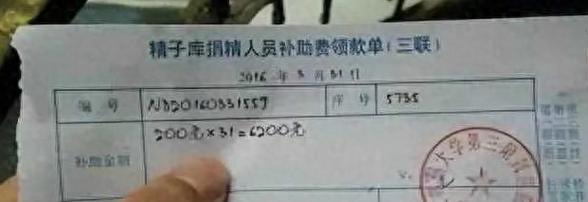 精子库捐精人员补助费领款单(三联)
2016年3月31日
编号 ND20160331557 序号 5735
补助金额 200元×31=6200元
大学第三附